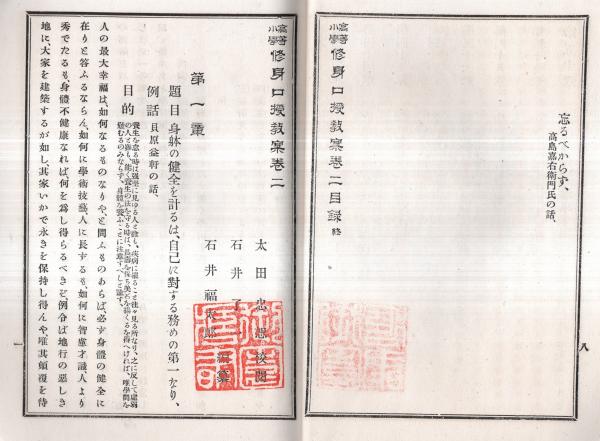 忘るべからず、
高島嘉右衛門氏の話、
高等小學修身口授教案卷二目録終
八
高等小學修身口授教案卷二
太田忠恕校閲
石井了一
石井福太郎編纂
第一章
題目身躰の健全を計るは、自己に對する務めの第一なり、
例話貝原益軒の話、
目的
人の最大幸福は、如何なるものなりや、と問ふものあらば、必ず身體の健全に
在りと答ふるならん、如何に學術技藝、人に長ずるも、如何に智慮才識、人より
秀でたるも、身體不健康なれば、何を爲し得らるべきぞ、例令ば地行の惡しき
地に、大家を建築するが如し、其家いかで永きを保持し得んや、唯其顚覆を待
一